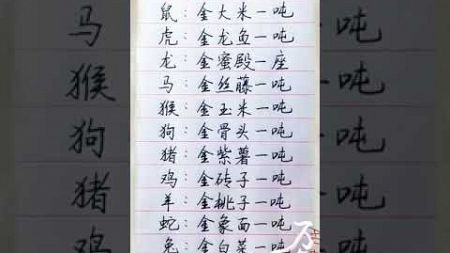 鼠：金大米一吨
虎：金龙鱼一吨
龙：金銮殿一座
马：金丝藤一吨
猴：金玉米一吨
狗：金骨头一吨
猪：金紫薯一吨
鸡：金砖子一吨
羊：金桃子一吨
蛇：金象面一吨
兔：金白菜一吨
马
猴
狗
猪
鸡